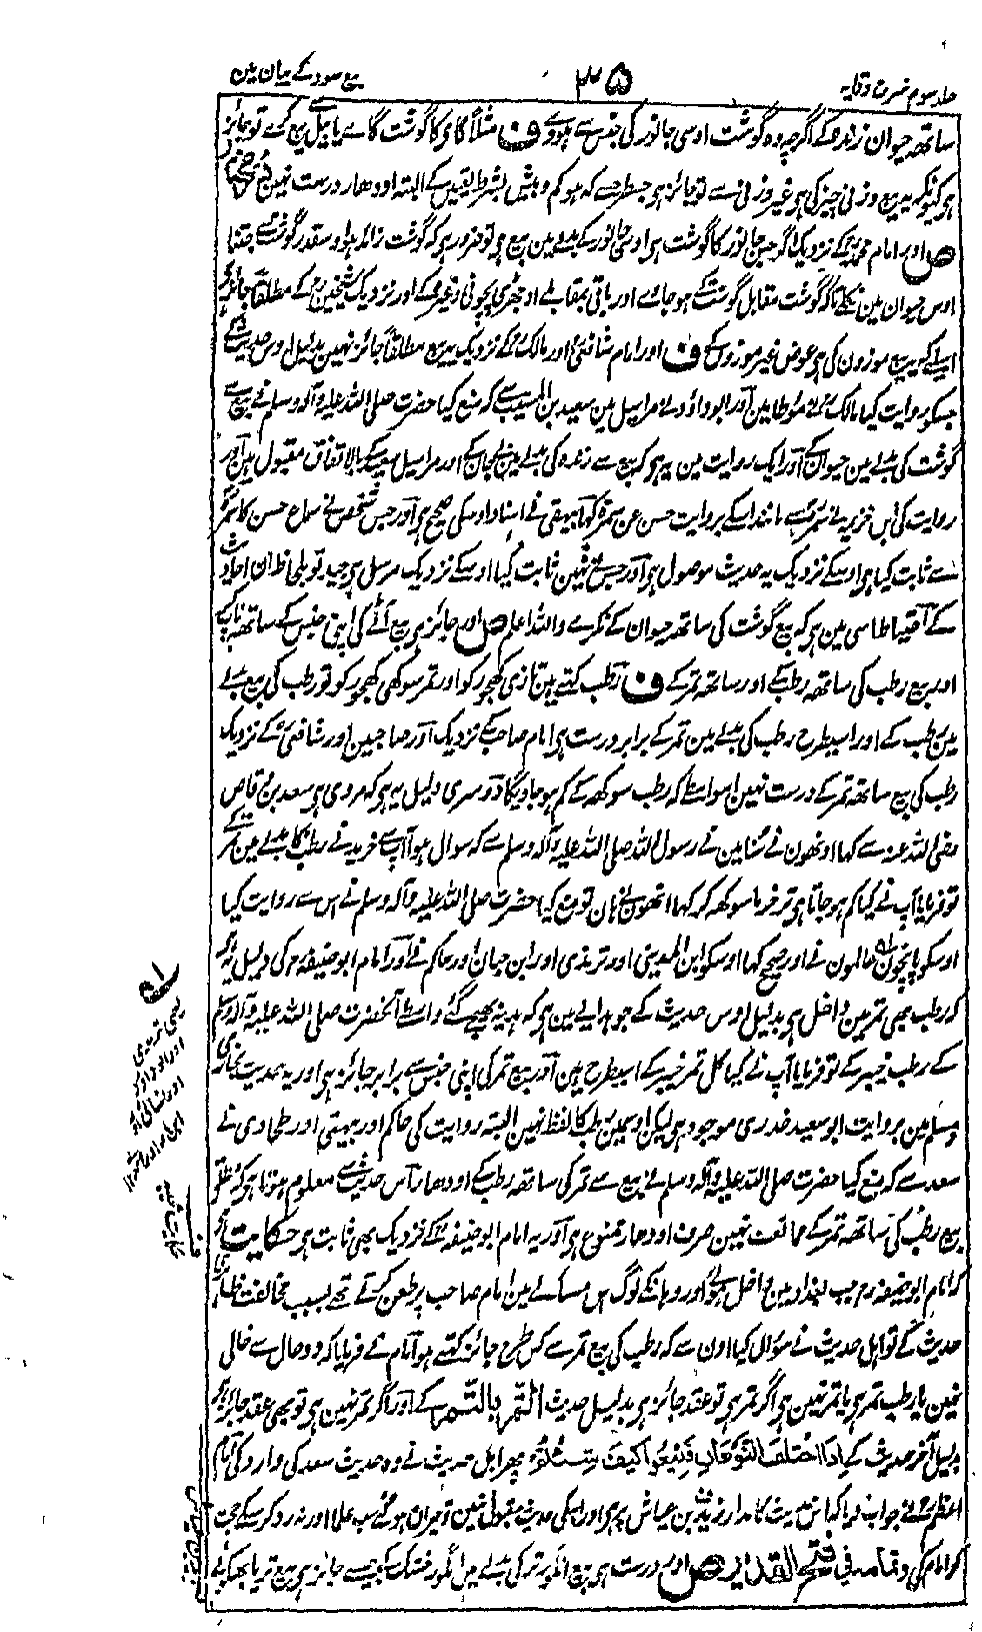 جلد سوم شرح وقایہ
۳۵
بیع سود کے بیان مین
ساتھ حیوان زندہ کے اگرچہ وہ گوشت اوسی جانور کی جنس سے ہووے ف مثلاً گای کا گوشت گاے یا بیل سے بیع کرے تو جائز
ہی کیونکہ یہ بیع وزنی چیز کی ہی غیر وزنی سے تو جائز ہو جسطرح سے کہ ہو کم و بیش بشرط تعیین کے البتہ اودھار درست نہین
ص اور امام محمدؒ کے نزدیک اگر جس جانور کا گوشت ہی اوسی جانور کے بدلے مین بیع ہو تو ضرور ہی کہ گوشت زائد ہو اوسقدر گوشت سے جتنا
اوس حیوان مین نکلے تاکہ گوشت مقابل گوشت کے ہو جاے اور باقی بمقابلے اوجھڑی پچونی وغیرہ کے اور نزدیک شیخینؒ کے مطلقاً جائز ہی
اسلیے کہ یہ بیع موزون کی ہی عوض غیر موزون کے ف اور امام شافعیؒ اور مالکؒ کے نزدیک یہ بیع مطلقاً جائز نہین بدلیل اوس حدیث کے
جسکو روایت کیا مالکؒ نے موطا مین اور ابوداؤد نے مراسیل مین سعید بن المسیب سے کہ منع کیا حضرت صلی اللہ علیہ وآلہ وسلم نے بیع سے
گوشت کی بدلے مین حیوان کے اور ایک روایت مین یہ ہی کہ بیع سے زندہ کی بدلے مین بیجان کے اور مراسیل سعید کے بالاتفاق مقبول ہین اور
روایت کی ابن خزیمہ نے سمرہ سے مانند اسکے بروایت حسن عن سمرہ کہا بیہقی نے اسناد اوسکی صحیح ہی اور جس شخص نے سماع حسن کا سمرہ
سے ثابت کیا ہی اوسکے نزدیک یہ حدیث موصول ہی اور جسنے نہین ثابت کیا اوسکے نزدیک مرسل ہی جید تو بلحاظ ان احادیث
کے احتیاط اسی مین ہی کہ بیع گوشت کی ساتھ حیوان کے نکرے واللہ اعلم ص اور جائز ہی بیع آٹے کی اپنی جنس کے ساتھ ناپ کے
اور بیع رطب کی ساتھ رطب کے اور ساتھ تمر کے ف رطب کہتے ہین تازی کھجور کو اور تمر سوکھی کھجور کو تو رطب کی بیع بدلے
مین رطب کے اور اسیطرح رطب کی بدلے مین تمر کے برابر درست ہی امام صاحب کے نزدیک اور صاحبین اور شافعیؒ کے نزدیک
رطب کی بیع ساتھ تمر کے درست نہین اسواسطے کہ رطب سوکھ کے کم ہو جاویگا دوسری دلیل یہ ہی کہ مروی ہی سعد بن وقاص
رضی اللہ عنہ سے کہا اونھون نے سنا مین نے رسول اللہ صلی اللہ علیہ وآلہ وسلم سے کہ سوال ہوا آپ سے خریدنے رطب کا بدلے مین تمر کے
تو فرمایا آپ نے کیا کم ہو جاتا ہی تر خرما سوکھ کر کہا انھون نے ہان تو منع کیا حضرت صلی اللہ علیہ وآلہ وسلم نے اس سے روایت کیا
اوسکو پانچون عالمون نے اور صحیح کہا اوسکو ابن المدینی اور ترمذی اور ابن حبان اور حاکم نے اور امام ابوحنیفہؒ کی دلیل یہ ہی
کہ رطب بھی تمر مین داخل ہی بدلیل اوس حدیث کے جو ہدایے مین ہی کہ ہدیہ بھیجے گئے واسطے آنحضرت صلی اللہ علیہ وآلہ وسلم
کے رطب خیبر کے تو فرمایا آپ نے کیا کل تمر خیبر کے اسیطرح ہین اور بیع تمر کی اپنی جنس سے برابر جائز ہی اور یہ حدیث بخاری
و مسلم مین بروایت ابوسعید خدری موجود ہی لیکن اوسمین رطب کا لفظ نہین البتہ روایت کی حاکم اور بیہقی اور طحاوی نے
سعد سے کہ منع کیا حضرت صلی اللہ علیہ وآلہ وسلم نے بیع سے تمر کی ساتھ رطب کے اودھار اس حدیث سے معلوم ہوتا ہی کہ مطلق
بیع رطب کی ساتھ تمر کے ممانعت نہین صرف اودھار ممنوع ہی اور یہ امام ابوحنیفہؒ کے نزدیک بھی ثابت ہی حکایت ہی
کہ امام ابوحنیفہؒ جب بغداد مین داخل ہوے اور وہانکے لوگ اس مسئلے مین امام صاحب پر طعن کرتے تھے بسبب مخالفت ظاہری
حدیث کے تو اہل حدیث نے سوال کیا اون سے کہ رطب کی بیع تمر سے کس طرح جائز کہتے ہو امام نے فرمایا کہ دو حال سے خالی
نہین یا رطب تمر ہی یا تمر نہین ہی اگر تمر ہی تو عقد جائز ہی بدلیل حدیث التمر بالتمر کے اور اگر تمر نہین ہی تو بھی عقد جائز ہی
بدلیل آخر حدیث کے اِذَا اخْتَلَفَ النَّوْعَانِ فَبِیْعُوْا كَیْفَ شِئْتُمْ پھر اہل حدیث نے وہ حدیث سعد کی وارد کی امام
اعظمؒ نے جواب دیا کہ اس حدیث کا مدار زید بن عیاش پر ہی اور اسکی حدیث مقبول نہین تو حیران ہو گئے سب علما اور نہ رد کر سکے حجت
کو امام کی وتمامہ فی فتح القدیر ص اور درست ہی بیع انگور تر کی بدلے مین انگور خشک کے جیسے جائز ہی بیع تر یا بھیگے
یعنی ترمذی
اور ابوداؤد
اور نسائی اور
ابن ماجہ اور